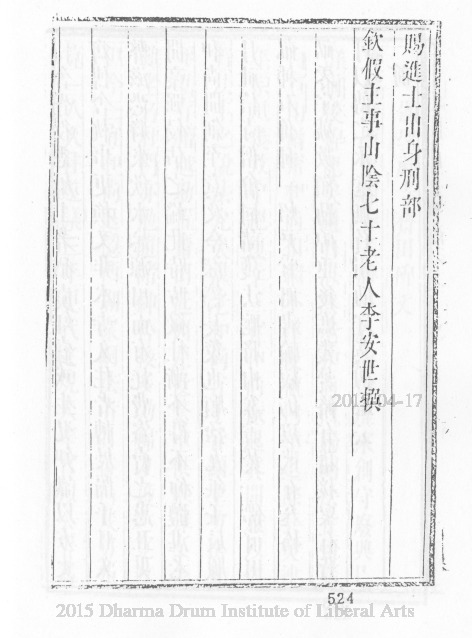 賜進士出身刑部
欽假主事山陰七十老人李安世撰
2015-04-17
524
2015 Dharma Drum Institute of Liberal Arts